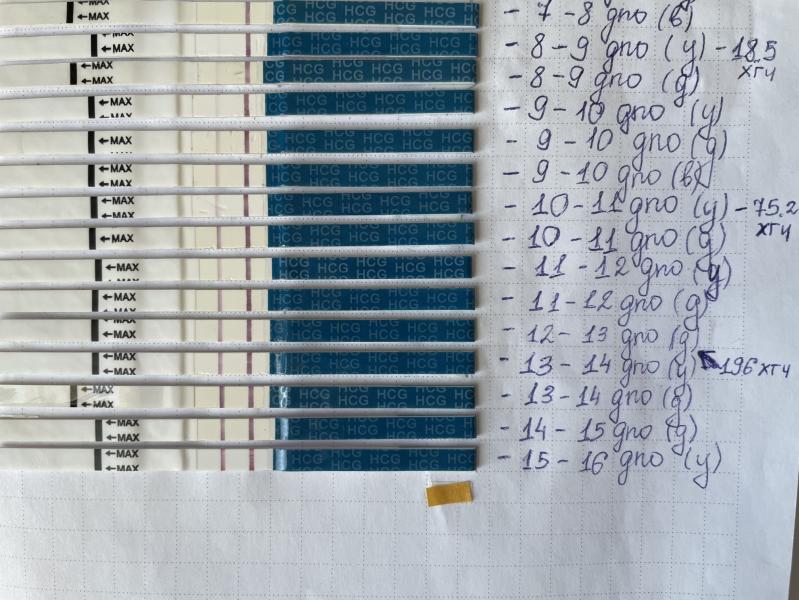 ←MAX HCG HCG HCG HCG - 7-8 дпо (в)
←MAX HCG HCG HCG HCG
←MAX HCG HCG HCG - 8-9 дпо (у) - 18.5 хгч
←MAX HCG HCG HCG HCG - 8-9 дпо (д)
←MAX
←MAX HCG HCG HCG HCG - 9-10 дпо (у)
←MAX HCG HCG HCG - 9-10 дпо (д)
←MAX HCG HCG HCG - 9-10 дпо (в)
←MAX
←MAX HCG HCG HCG HCG - 10-11 дпо (у) - 75.2 хгч
←MAX
←MAX HCG HCG HCG - 10-11 дпо (д)
←MAX HCG HCG HCG HCG - 11-12 дпо (у)
←MAX HCG HCG HCG - 11-12 дпо (д)
←MAX
←MAX HCG HCG HCG HCG - 12-13 дпо (д)
←MAX HCG HCG HCG - 13-14 дпо (у) 196 хгч
←MAX
←MAX HCG HCG HCG HCG - 13-14 дпо (д)
←MAX
←MAX HCG HCG HCG HCG - 14-15 дпо (д)
←MAX
←MAX HCG HCG HCG HCG - 15-16 дпо (у)
←MAX